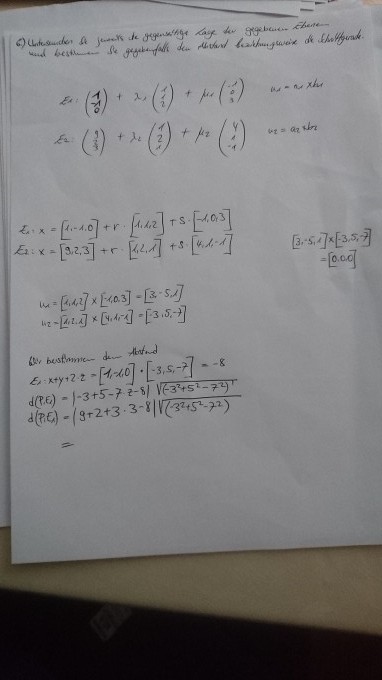 6) Untersuchen Sie jeweils die gegenseitige Lage der gegebenen Ebenen
und bestimmen Sie gegebenenfalls den Abstand beziehungsweise die Schnittgerade.
E₁: (1 -1 0) + λ₁ (1 1 2) + μ₁ (-1 0 3) u₁ = a₁ x b₁
E₂: (9 2 3) + λ₂ (1 2 1) + μ₂ (4 1 -1) u₂ = a₂ x b₂
E₁: x = [1,-1,0] + r · [1,1,2] + s · [-1,0,3]
E₂: x = [9,2,3] + r · [1,2,1] + s · [4,1,-1]
[3,-5,1] x [-3,5,-7]
= [0,0,0]
u₁ = [1,1,2] x [-1,0,3] = [3,-5,1]
u₂ = [1,2,1] x [4,1,-1] = [-3,5,-7]
Wir bestimmen den Abstand
E₁: x+y+2·z = [1,-1,0] · [-3,5,-7] = -8
d(P,E₁) = |-3+5-7 z-8| √(-3²+5²-7²)
d(P,E₁) = |9+2+3·3-8| √(-3²+5²-7²)
=